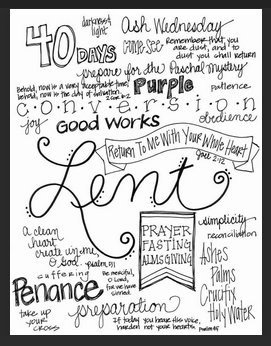 40 DAYS
darkness
light
Ash Wednesday
come & see
Remember that you
are dust, and to
dust you shall return
prepare for the Paschal Mystery
Behold, now is a very acceptable time;
behold, now is the day of salvation.
2 Cor. 6:2
Purple
patience
conversion
joy
Good Works
obedience
Return To Me With Your Whole Heart
Joel 2:12
Lent
simplicity
reconciliation
PRAYER
FASTING
ALMSGIVING
A clean
heart
create in me,
O God.
psalm 51
suffering
Be merciful,
O Lord,
for we have
sinned
Ashes
Palms
Crucifix
Holy Water
Penance
preparation
take up
your
cross
If today you hear his voice,
harden not your hearts.
Psalm 95